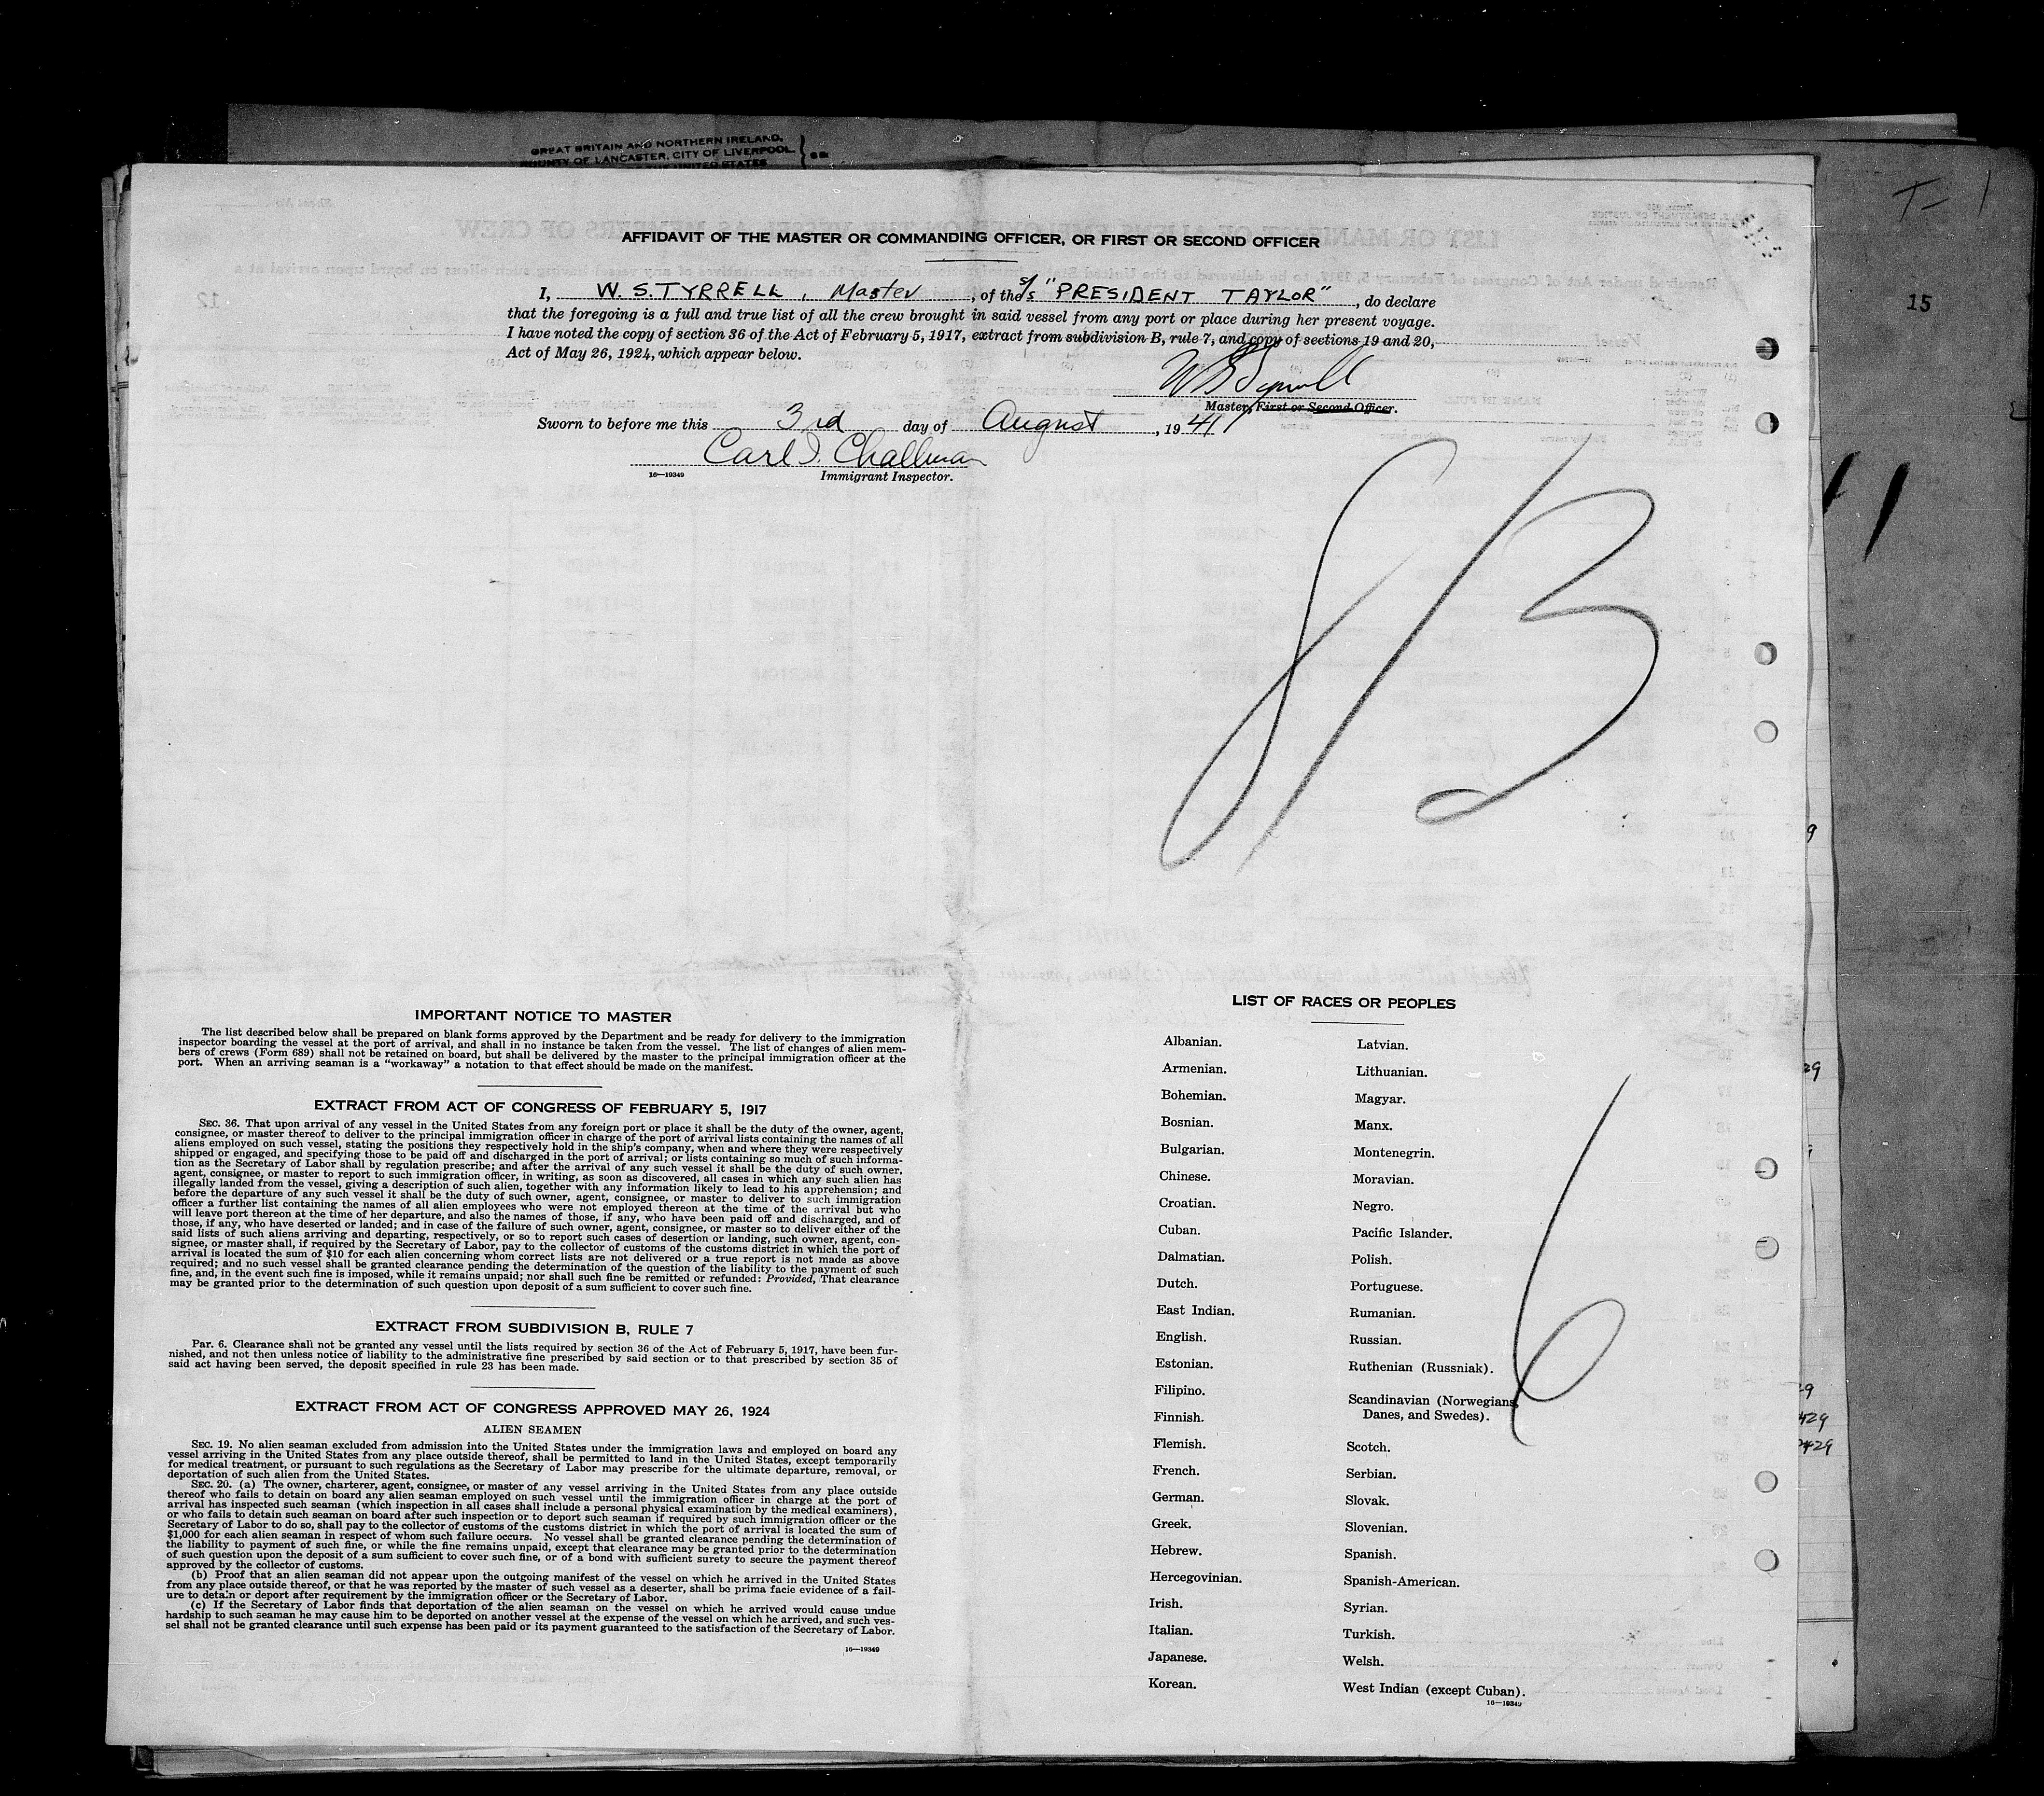 GREAT BRITAIN AND NORTHERN IRELAND,
COUNTY OF LANCASTER, CITY OF LIVERPOOL } SS
THE UNITED STATES
T- 1
15
AFFIDAVIT OF THE MASTER OR COMMANDING OFFICER, OR FIRST OR SECOND OFFICER
I, W. S. TYRRELL, Master, of the s/s "PRESIDENT TAYLOR", do declare
that the foregoing is a full and true list of all the crew brought in said vessel from any port or place during her present voyage.
I have noted the copy of section 36 of the Act of February 5, 1917, extract from subdivision B, rule 7, and copy of sections 19 and 20,
Act of May 26, 1924, which appear below.
W S Tyrrell
Master, First or Second Officer.
Sworn to before me this 3rd day of August, 1941
Carl J. Challman
16—19349 Immigrant Inspector.
IMPORTANT NOTICE TO MASTER
The list described below shall be prepared on blank forms approved by the Department and be ready for delivery to the immigration
inspector boarding the vessel at the port of arrival, and shall in no instance be taken from the vessel. The list of changes of alien mem-
bers of crews (Form 689) shall not be retained on board, but shall be delivered by the master to the principal immigration officer at the
port. When an arriving seaman is a "workaway" a notation to that effect should be made on the manifest.
EXTRACT FROM ACT OF CONGRESS OF FEBRUARY 5, 1917
SEC. 36. That upon arrival of any vessel in the United States from any foreign port or place it shall be the duty of the owner, agent,
consignee, or master thereof to deliver to the principal immigration officer in charge of the port of arrival lists containing the names of all
aliens employed on such vessel, stating the positions they respectively hold in the ship's company, when and where they were respectively
shipped or engaged, and specifying those to be paid off and discharged in the port of arrival; or lists containing so much of such informa-
tion as the Secretary of Labor shall by regulation prescribe; and after the arrival of any such vessel it shall be the duty of such owner,
agent, consignee, or master to report to such immigration officer, in writing, as soon as discovered, all cases in which any such alien has
illegally landed from the vessel, giving a description of such alien, together with any information likely to lead to his apprehension; and
before the departure of any such vessel it shall be the duty of such owner, agent, consignee, or master to deliver to such immigration
officer a further list containing the names of all alien employees who were not employed thereon at the time of the arrival but who
will leave port thereon at the time of her departure, and also the names of those, if any, who have been paid off and discharged, and of
those, if any, who have deserted or landed; and in case of the failure of such owner, agent, consignee, or master so to deliver either of the
said lists of such aliens arriving and departing, respectively, or so to report such cases of desertion or landing, such owner, agent, con-
signee, or master shall, if required by the Secretary of Labor, pay to the collector of customs of the customs district in which the port of
arrival is located the sum of $10 for each alien concerning whom correct lists are not delivered or a true report is not made as above
required; and no such vessel shall be granted clearance pending the determination of the question of the liability to the payment of such
fine, and, in the event such fine is imposed, while it remains unpaid; nor shall such fine be remitted or refunded: Provided, That clearance
may be granted prior to the determination of such question upon deposit of a sum sufficient to cover such fine.
EXTRACT FROM SUBDIVISION B, RULE 7
Par. 6. Clearance shall not be granted any vessel until the lists required by section 36 of the Act of February 5, 1917, have been fur-
nished, and not then unless notice of liability to the administrative fine prescribed by said section or to that prescribed by section 35 of
said act having been served, the deposit specified in rule 23 has been made.
EXTRACT FROM ACT OF CONGRESS APPROVED MAY 26, 1924
ALIEN SEAMEN
SEC. 19. No alien seaman excluded from admission into the United States under the immigration laws and employed on board any
vessel arriving in the United States from any place outside thereof, shall be permitted to land in the United States, except temporarily
for medical treatment, or pursuant to such regulations as the Secretary of Labor may prescribe for the ultimate departure, removal, or
deportation of such alien from the United States.
SEC. 20. (a) The owner, charterer, agent, consignee, or master of any vessel arriving in the United States from any place outside
thereof who fails to detain on board any alien seaman employed on such vessel until the immigration officer in charge at the port of
arrival has inspected such seaman (which inspection in all cases shall include a personal physical examination by the medical examiners),
or who fails to detain such seaman on board after such inspection or to deport such seaman if required by such immigration officer or the
Secretary of Labor to do so, shall pay to the collector of customs of the customs district in which the port of arrival is located the sum of
$1,000 for each alien seaman in respect of whom such failure occurs. No vessel shall be granted clearance pending the determination of
the liability to payment of such fine, or while the fine remains unpaid, except that clearance may be granted prior to the determination
of such question upon the deposit of a sum sufficient to cover such fine, or of a bond with sufficient surety to secure the payment thereof
approved by the collector of customs.
(b) Proof that an alien seaman did not appear upon the outgoing manifest of the vessel on which he arrived in the United States
from any place outside thereof, or that he was reported by the master of such vessel as a deserter, shall be prima facie evidence of a fail-
ure to detain or deport after requirement by the immigration officer or the Secretary of Labor.
(c) If the Secretary of Labor finds that deportation of the alien seaman on the vessel on which he arrived would cause undue
hardship to such seaman he may cause him to be deported on another vessel at the expense of the vessel on which he arrived, and such ves-
sel shall not be granted clearance until such expense has been paid or its payment guaranteed to the satisfaction of the Secretary of Labor.
16—19349
LIST OF RACES OR PEOPLES
Albanian.
Armenian.
Bohemian.
Bosnian.
Bulgarian.
Chinese.
Croatian.
Cuban.
Dalmatian.
Dutch.
East Indian.
English.
Estonian.
Filipino.
Finnish.
Flemish.
French.
German.
Greek.
Hebrew.
Hercegovinian.
Irish.
Italian.
Japanese.
Korean.
Latvian.
Lithuanian.
Magyar.
Manx.
Montenegrin.
Moravian.
Negro.
Pacific Islander.
Polish.
Portuguese.
Rumanian.
Russian.
Ruthenian (Russniak).
Scandinavian (Norwegians,
Danes, and Swedes).
Scotch.
Serbian.
Slovak.
Slovenian.
Spanish.
Spanish-American.
Syrian.
Turkish.
Welsh.
West Indian (except Cuban).
16—19349
6